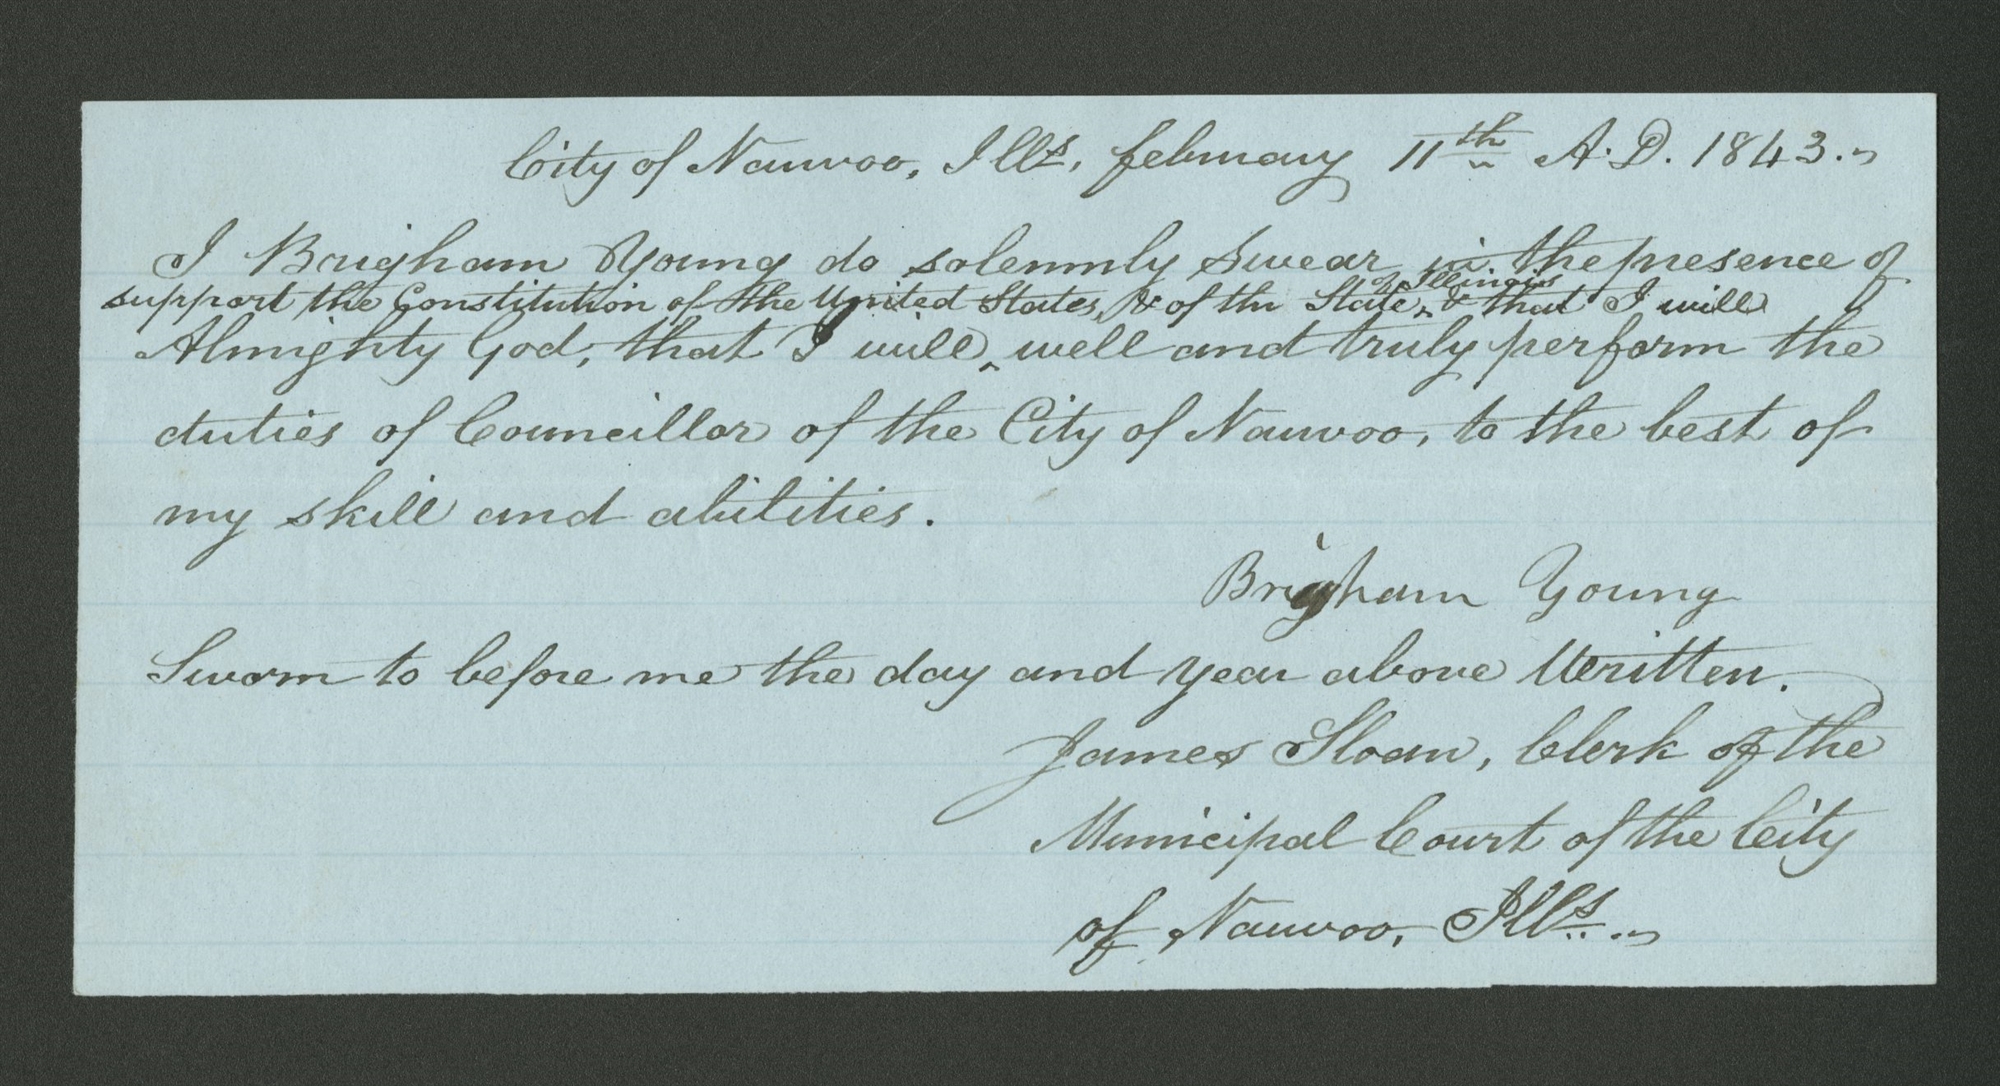 City of Nauvoo, Ills, february 11th A.D. 1843.
I Brigham Young do solemnly Swear in the presence of
of Illinois
support the Constitution of the United States, & of the State, & that I will
Almighty God, that I will, well and truly perform the
duties of Councillor of the City of Nauvoo, to the best of
my skill and abilities.
Brigham Young
Sworn to before me the day and year above Written.
James Sloan, Clerk of the
Municipal Court of the City
of Nauvoo, Ills.